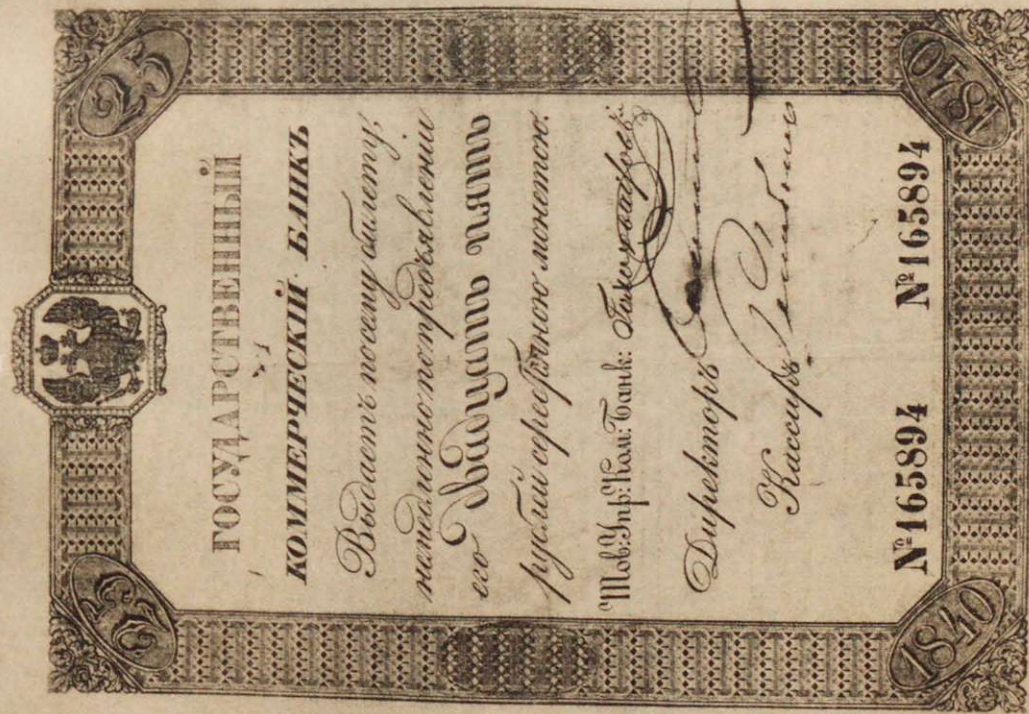 25 25
ГОСУДАРСТВЕННЫЙ
КОММЕРЧЕСКІЙ БАНКЪ
Выдаетъ по сему билету,
немедленно по предъявленіи
его Двадцать пять
рублей серебряною монетою.
Тов: Упр: Ком: Банк:
Директоръ
Кассиръ
№165894 №165894
1840 1840